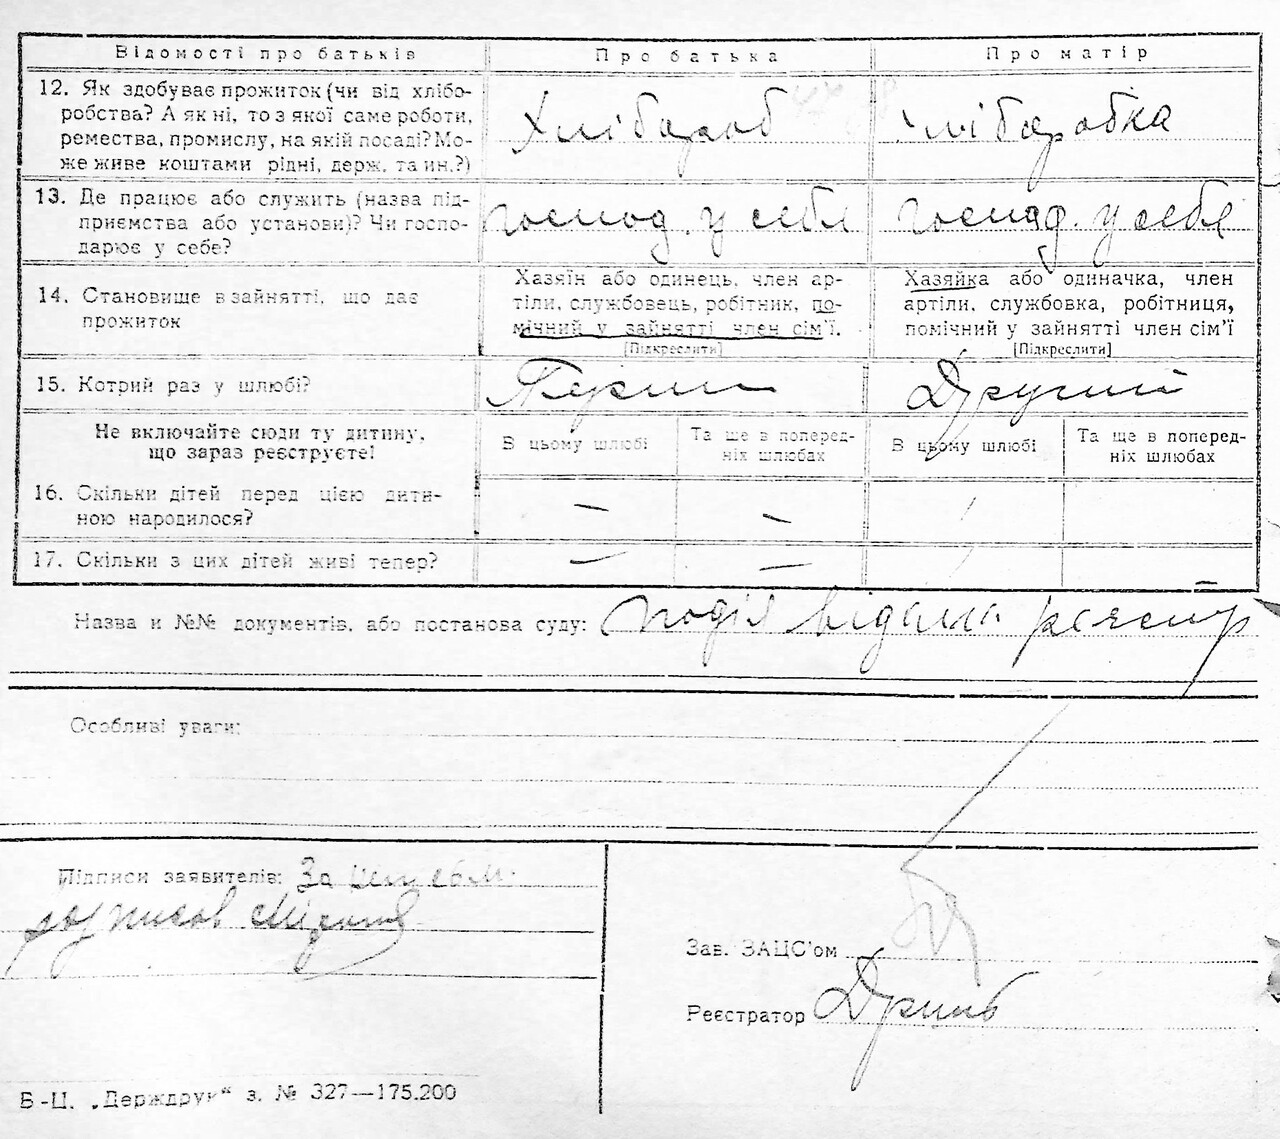 Відомості про батьків Про батька Про матір
12. Як здобуває прожиток (чи від хлібо-
робства? А як ні, то з якої саме роботи,
ремества, промислу, на якій посаді? Мо-
же живе коштами рідні, держ. та ин.?)
Хлібороб хліборобка
13. Де працює або служить (назва під-
приємства або установи)? Чи госпо-
дарює у себе?
господ. у себя господ. у себя
14. Становище в зайнятті, що дає
прожиток
Хазяїн або одинець, член ар-
тіли, службовець, робітник, по-
мічний у зайнятті член сім'ї.
[Підкреслити]
Хазяйка або одиначка, член
артіли, службовка, робітниця,
помічний у зайнятті член сім'ї
[Підкреслити]
15. Котрий раз у шлюбі? Перший Другий
Не включайте сюди ту дитину,
що зараз реєструєте!
В цьому шлюбі
Та ще в поперед-
ніх шлюбах
В цьому шлюбі
Та ще в поперед-
ніх шлюбах
16. Скільки дітей перед цією дити-
ною народилося? — —
17. Скільки з цих дітей живі тепер? — —
Назва и №№ документів, або постанова суду: подія відома реєстр
Особливі уваги:
Підписи заявителів: За
Зав. ЗАЦС'ом
Реєстратор
Б-Ц. „Держдрук“ з. № 327—175.200